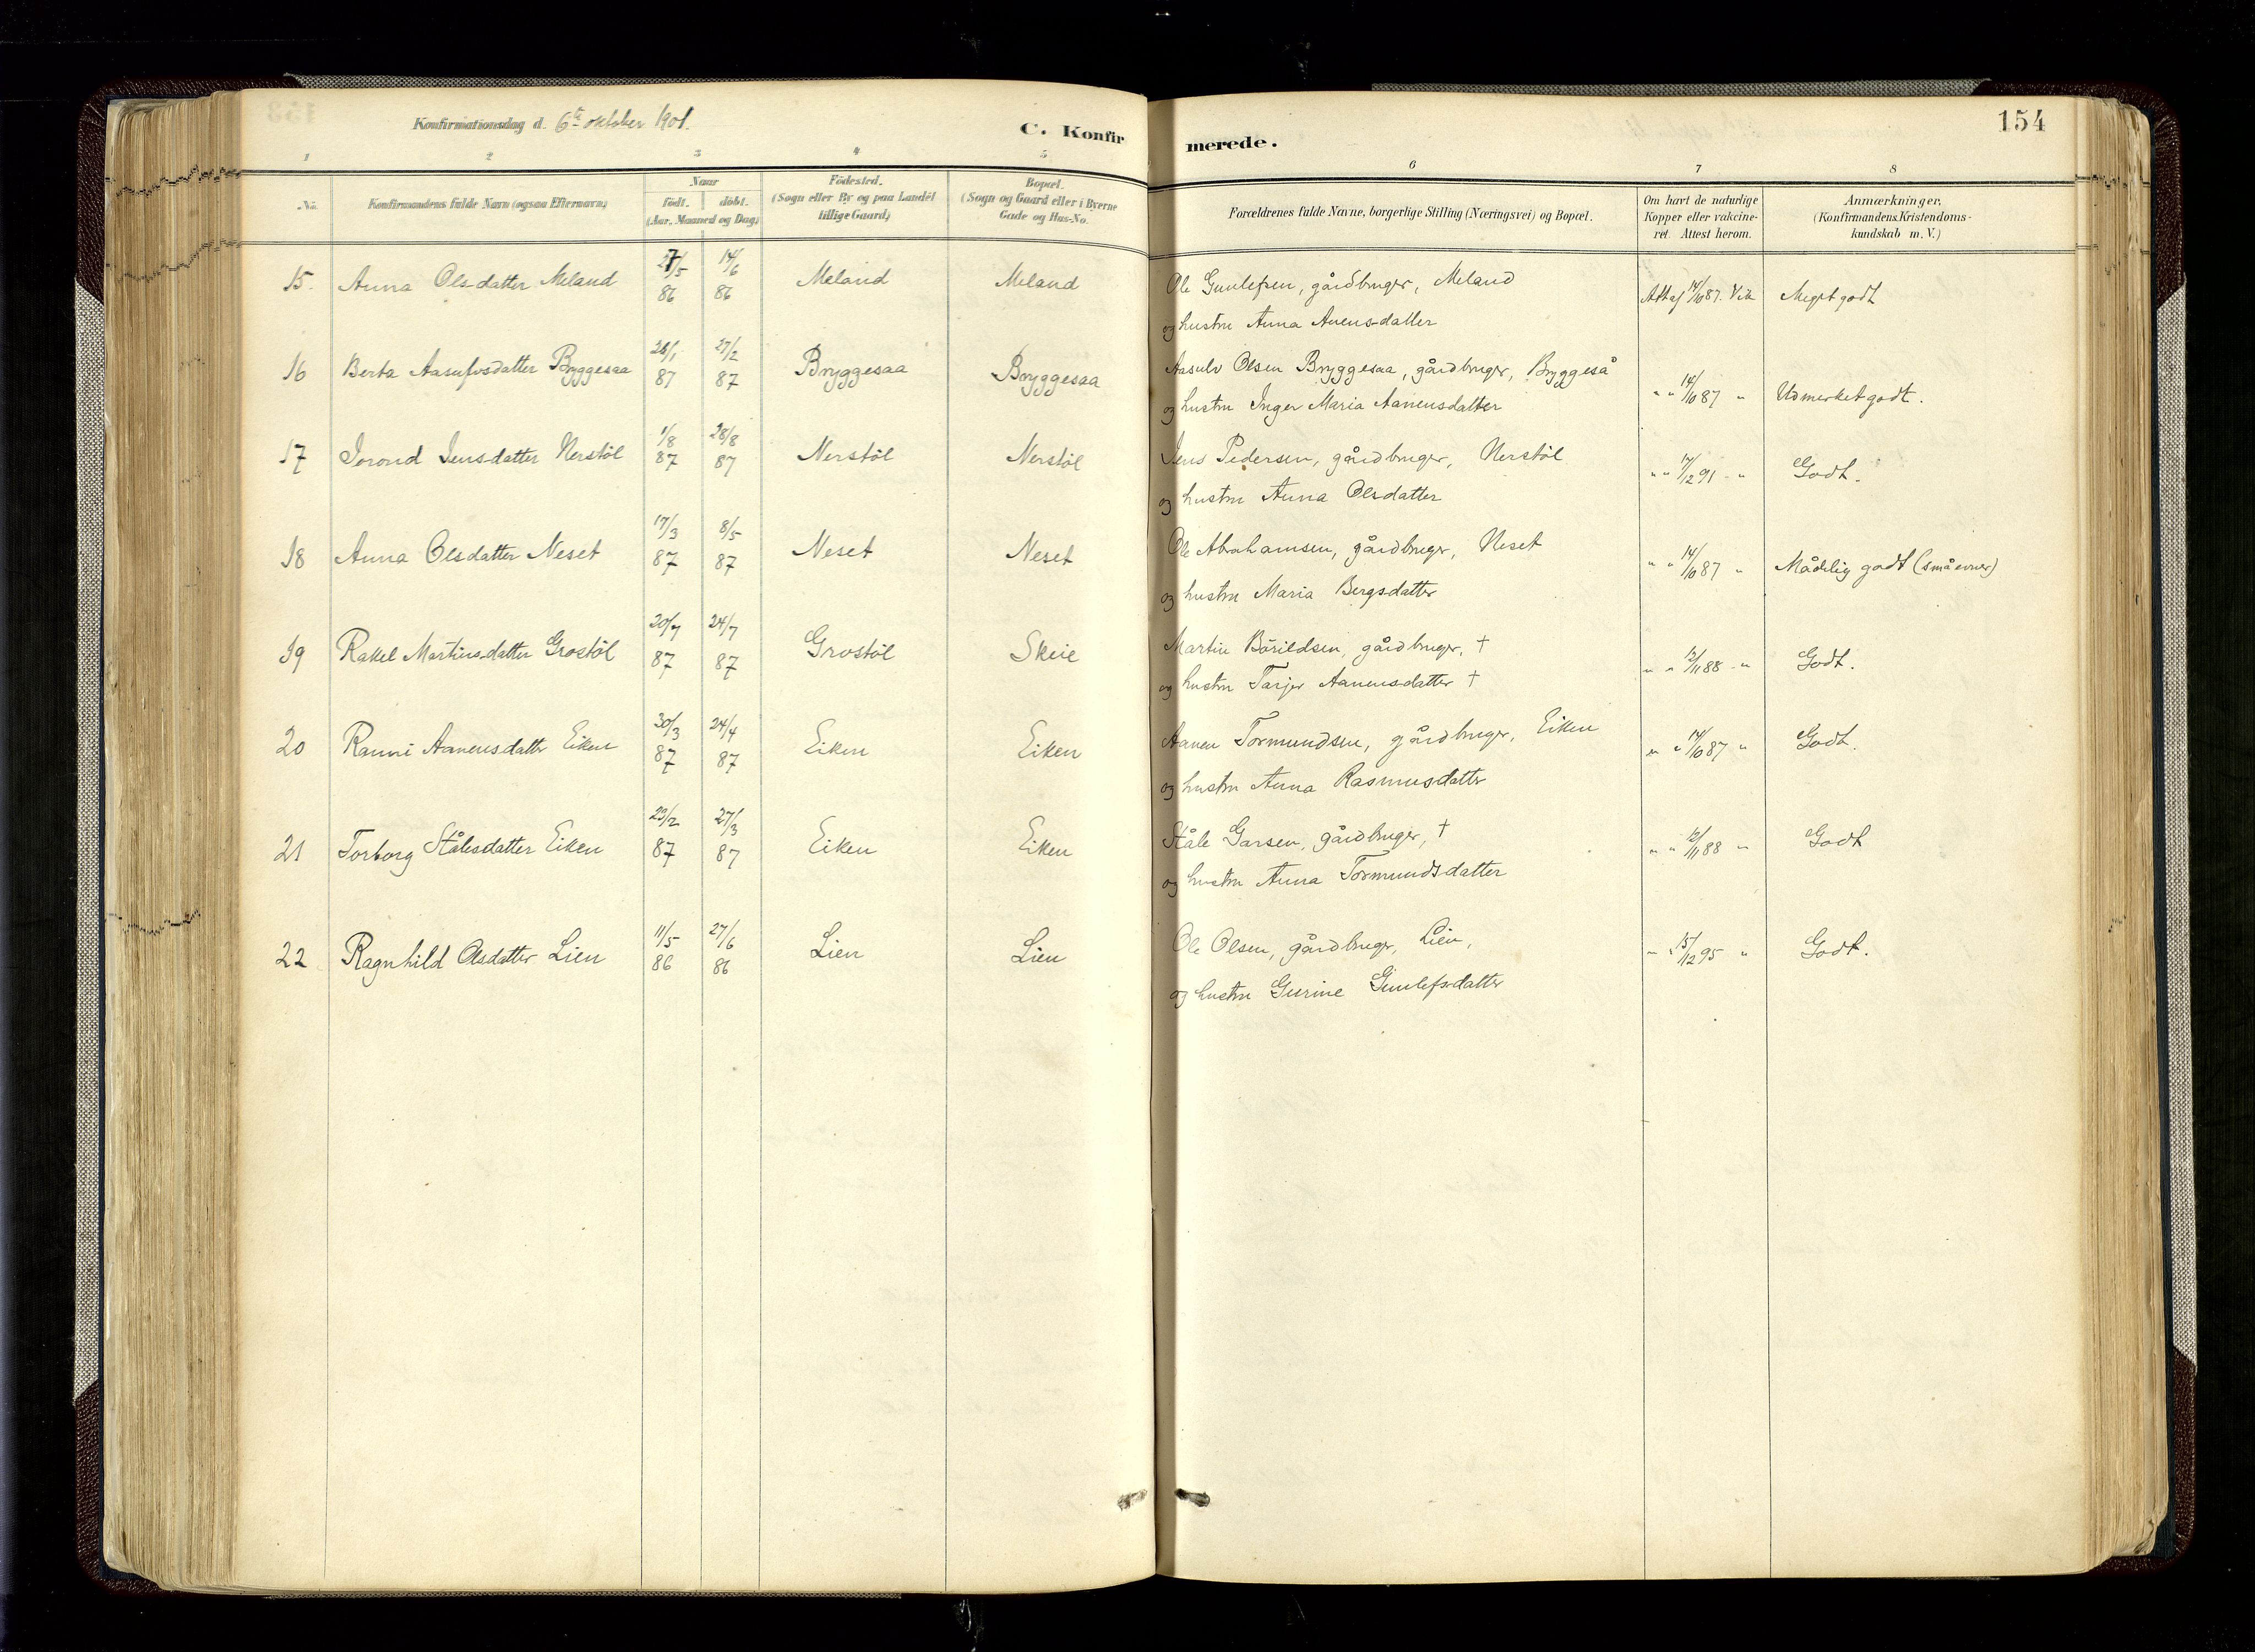 154
Konfirmationsdag d. 6te oktober 1901.
C. Konfirmerede.
1 2 3 4 5 6 7 8
No.
Konfirmandens fulde Navn (ogsaa Efternavn)
Naar
født. døbt.
(Aar, Maaned og Dag)
Fødested.
(Sogn eller By og paa Landet
tillige Gaard)
Bopæl.
(Sogn og Gaard eller i Byerne
Gade og Hus-No.
Forældrenes fulde Navne, borgerlige Stilling (Næringsvei) og Bopæl.
Om havt de naturlige
Kopper eller vakcine-
ret. Attest herom.
Anmærkninger.
(Konfirmandens Kristendoms-
kundskab m. V.)
15. Anna Olsdatter Meland 27/5 86 14/6 86 Meland Meland Ole Gunlefsen, gårdbruger, Meland Att af 14/10 87. Vik Meget godt
og hustru Anna Anensdatter
16 Berta Aasulvsdatter Bryggesaa 28/1 87 27/2 87 Bryggesaa Bryggesaa Aasulv Olsen Bryggesaa, gårdbruger, Bryggeså " " 14/10 87 " Udmerket godt.
og hustru Inger Maria Aanensdatter
17 Jorond Jensdatter Nerstöl 1/8 87 28/8 87 Nerstöl Nerstöl Jens Pedersen, gårdbruger, Nerstöl " " 17/12 91 - " Godt.
og hustru Anna Olsdatter
18 Anna Olsdatter Neset 17/3 87 8/5 87 Neset Neset Ole Abrahamsen, gårdbruger, Neset " " 14/10 87 " Mådelig godt (små evner)
og hustru Maria Bergsdatter
19 Rakel Martinsdatter Grostöl 20/7 87 24/7 87 Grostöl Skeie Martin Bårildsen, gårdbruger, † " " 12/11 88 - " Godt.
og hustru Tarjer Aanensdatter †
20 Ranni Aanensdatter Eiken 30/3 87 24/4 87 Eiken Eiken Aanen Tormundsen, gårdbruger, Eiken " " 14/10 87 " Godt.
og hustru Anna Rasmusdatter
21 Torborg Stålesdatter Eiken 23/2 87 27/3 87 Eiken Eiken Ståle Garsen, gårdbruger, † " " 12/11 88 " Godt
og hustru Anna Tormundsdatter
22 Ragnhild Olsdatter Lien 11/5 86 27/6 86 Lien Lien Ole Olsen, gårdbruger, Lien, " " 15/12 95 " Godt.
og hustru Gurine Gunlefsdatter